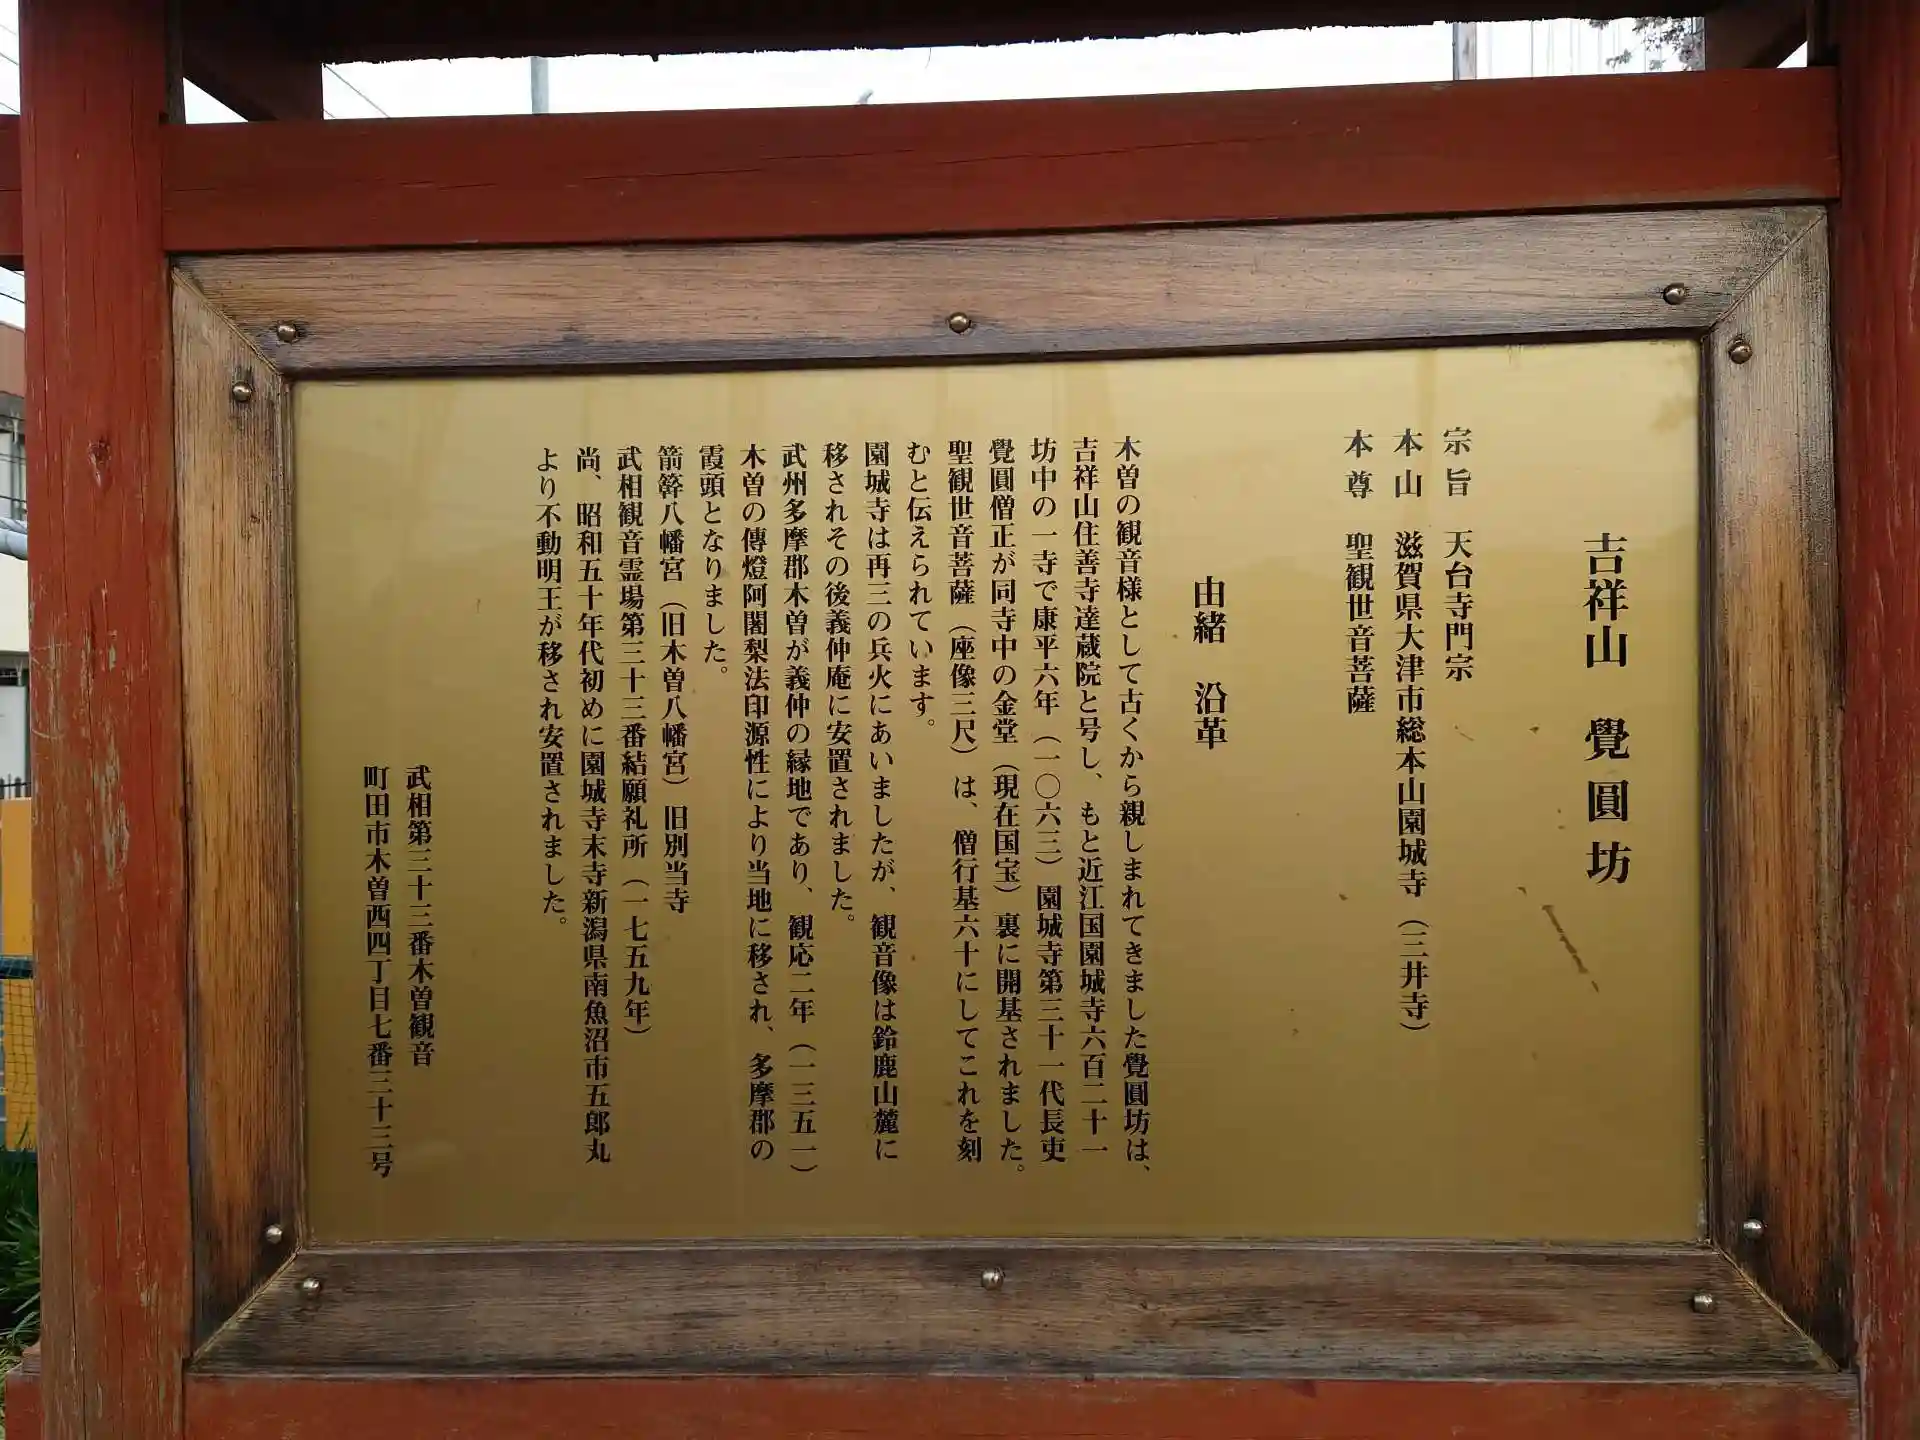 吉祥山　覺圓坊
宗旨　天台寺門宗
本山　滋賀県大津市総本山園城寺（三井寺）
本尊　聖観世音菩薩
由緒　沿革
木曽の観音様として古くから親しまれてきました覺圓坊は、
吉祥山住善寺達蔵院と号し、もと近江国園城寺六百二十一
坊中の一寺で康平六年（一〇六三）園城寺第三十一代長吏
覺圓僧正が同寺中の金堂（現在国宝）裏に開基されました。
聖観世音菩薩（座像三尺）は、僧行基六十にしてこれを刻
むと伝えられています。
園城寺は再三の兵火にあいましたが、観音像は鈴鹿山麓に
移されその後義仲庵に安置されました。
武州多摩郡木曽が義仲の縁地であり、観応二年（一三五一）
木曽の傳燈阿闍梨法印源性により当地に移され、多摩郡の
霞頭となりました。
箭簳八幡宮（旧木曽八幡宮）旧別当寺
武相観音霊場第三十三番結願礼所（一七五九年）
尚、昭和五十年代初めに園城寺末寺新潟県南魚沼市五郎丸
より不動明王が移され安置されました。
武相第三十三番木曽観音
町田市木曽西四丁目七番三十三号